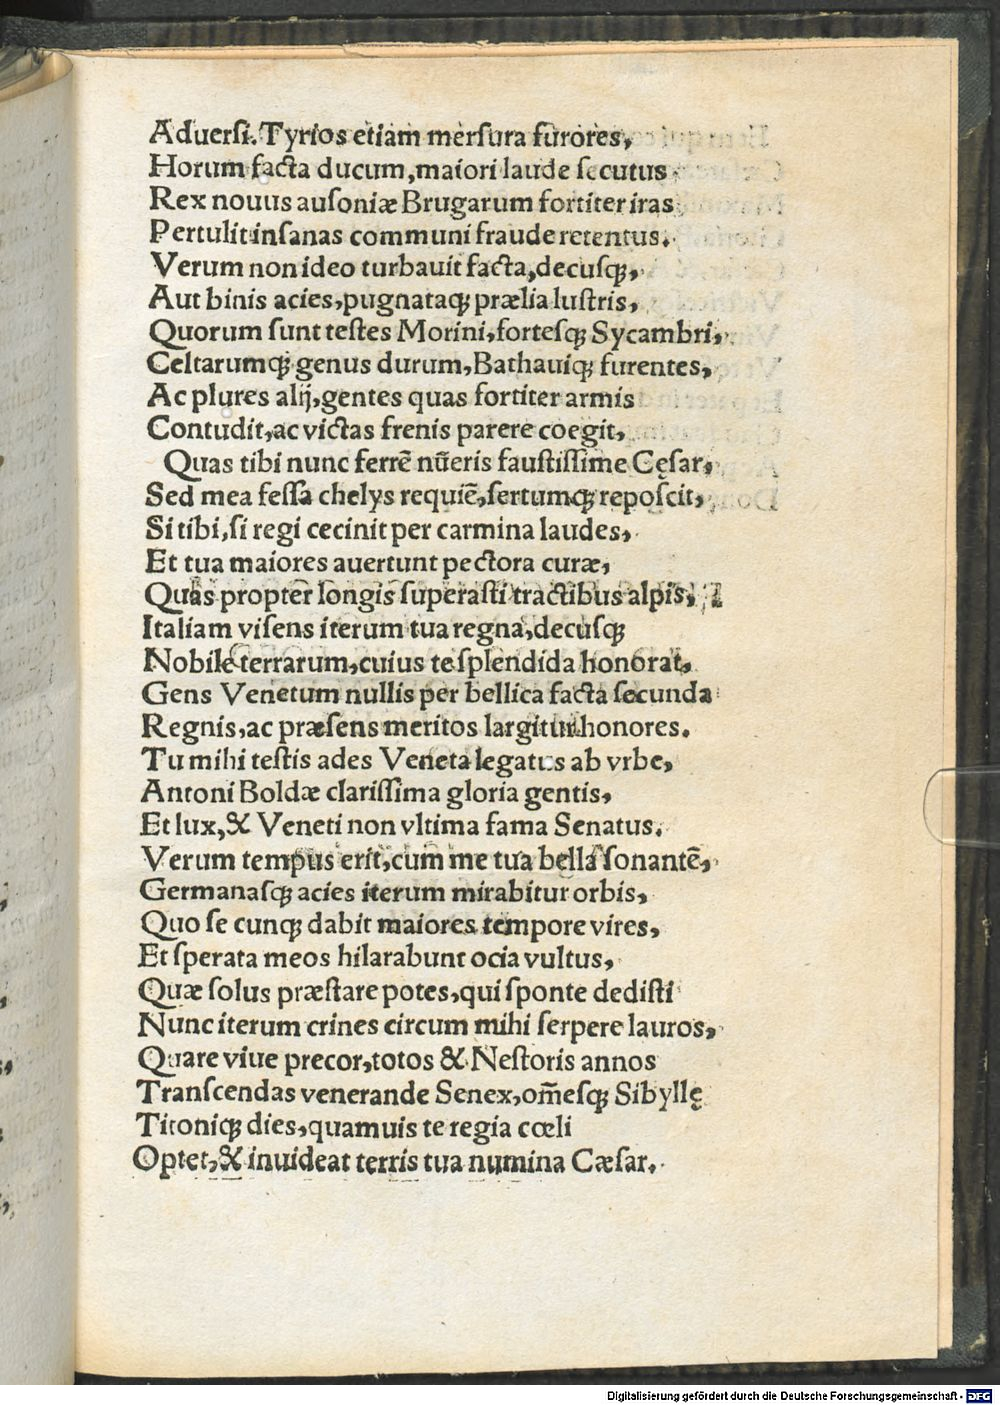 Aduerſi. Tyrios etiam merſura furores,
Horum facta ducum, maiori laude ſecutus
Rex nouus auſoniæ Brugarum fortiter iras
Pertulit inſanas communi fraude retentus.
Verum non ideo turbauit facta, decuſqꝫ,
Aut binis acies, pugnataqꝫ prælia luſtris,
Quorum ſunt teſtes Morini, forteſqꝫ Sycambri,
Celtarumqꝫ genus durum, Bathauiqꝫ furentes,
Ac plures alij, gentes quas fortiter armis
Contudit, ac victas frenis parere coegit,
Quas tibi nunc ferrē nūeris fauſtiſſime Cęſar,
Sed mea feſſa chelys requiē, ſertumqꝫ repoſcit,
Si tibi, ſi regi cecinit per carmina laudes,
Et tua maiores auertunt pectora curæ,
Quas propter longis ſuperaſti tractibus alpis,
Italiam viſens iterum tua regna, decuſqꝫ
Nobile terrarum, cuius te ſplendida honorat,
Gens Venetum nullis per bellica facta ſecunda
Regnis, ac præſens meritos largitur honores.
Tu mihi teſtis ades Veneta legatus ab vrbe,
Antoni Boldæ clariſſima gloria gentis,
Et lux, & Veneti non vltima fama Senatus.
Verum tempus erit, cum me tua bella ſonantē,
Germanaſqꝫ acies iterum mirabitur orbis,
Quo ſe cunqꝫ dabit maiores tempore vires,
Et ſperata meos hilarabunt ocia vultus,
Quæ ſolus præſtare potes, qui ſponte dediſti
Nunc iterum crines circum mihi ſerpere lauros,
Quare viue precor, totos & Neſtoris annos
Tranſcendas venerande Senex, om̄eſqꝫ Sibyllę
Titoniqꝫ dies, quamuis te regia cœli
Optet, & inuideat terris tua numina Cæſar.
Digitalisierung gefördert durch die Deutsche Forschungsgemeinschaft - DFG